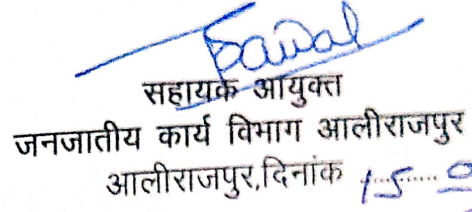 सहायक आयुक्त
जनजातीय कार्य विभाग आलीराजपुर
आलीराजपुर,दिनांक 15